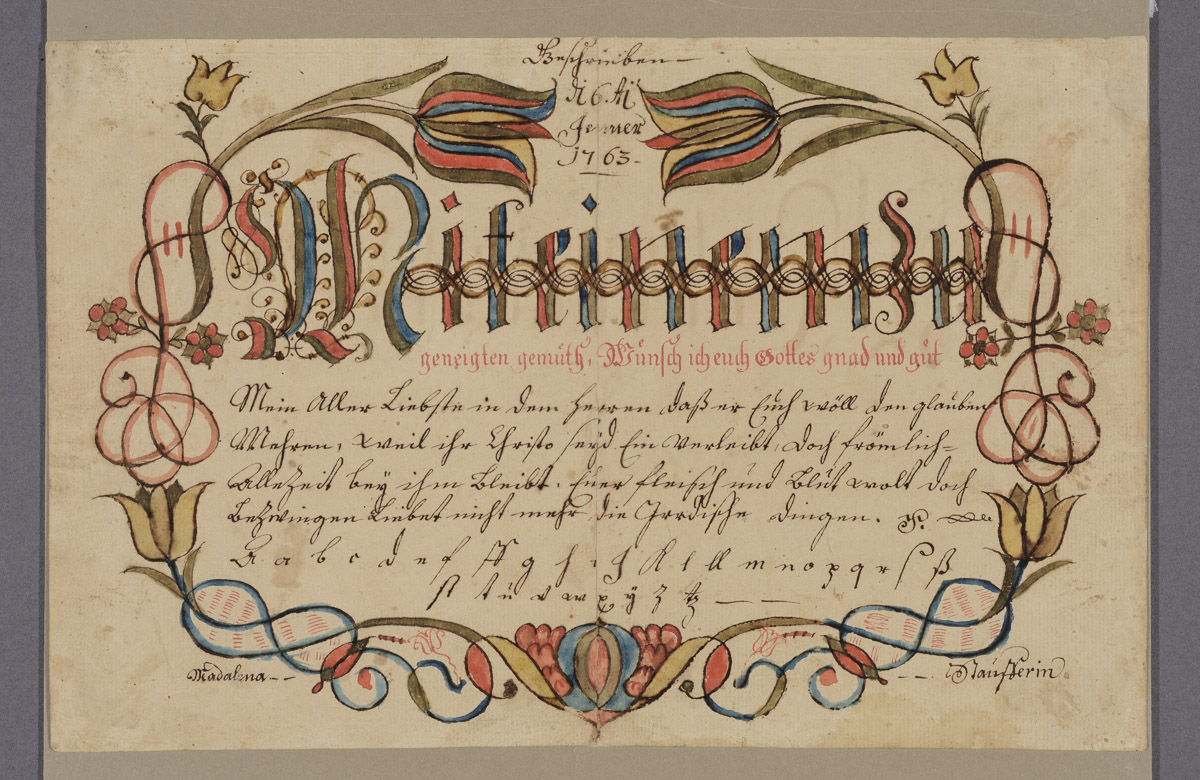 Geschrieben
di 6. tӱ
Jenner
1763
Mit einen Zu
geneigten gemüth, Wünsch ich euch Gottes gnad und güt
Mein Aller Liebste in dem herren daß er Euch wöll den glauben
Mehren, weil ihr Christo seyd Ein verleibt, Doch frömlich-
Allezeit bey ihm Bleibt. Euer fleisch und Blüt wolt doch
bezwingen Liebet nicht mehr die Irrdische dingen.
A a b c d e f ff g h i j k l ll m n o p q r ſ ß
st t ü v w x ÿ z tz
Madalena
Staufferin